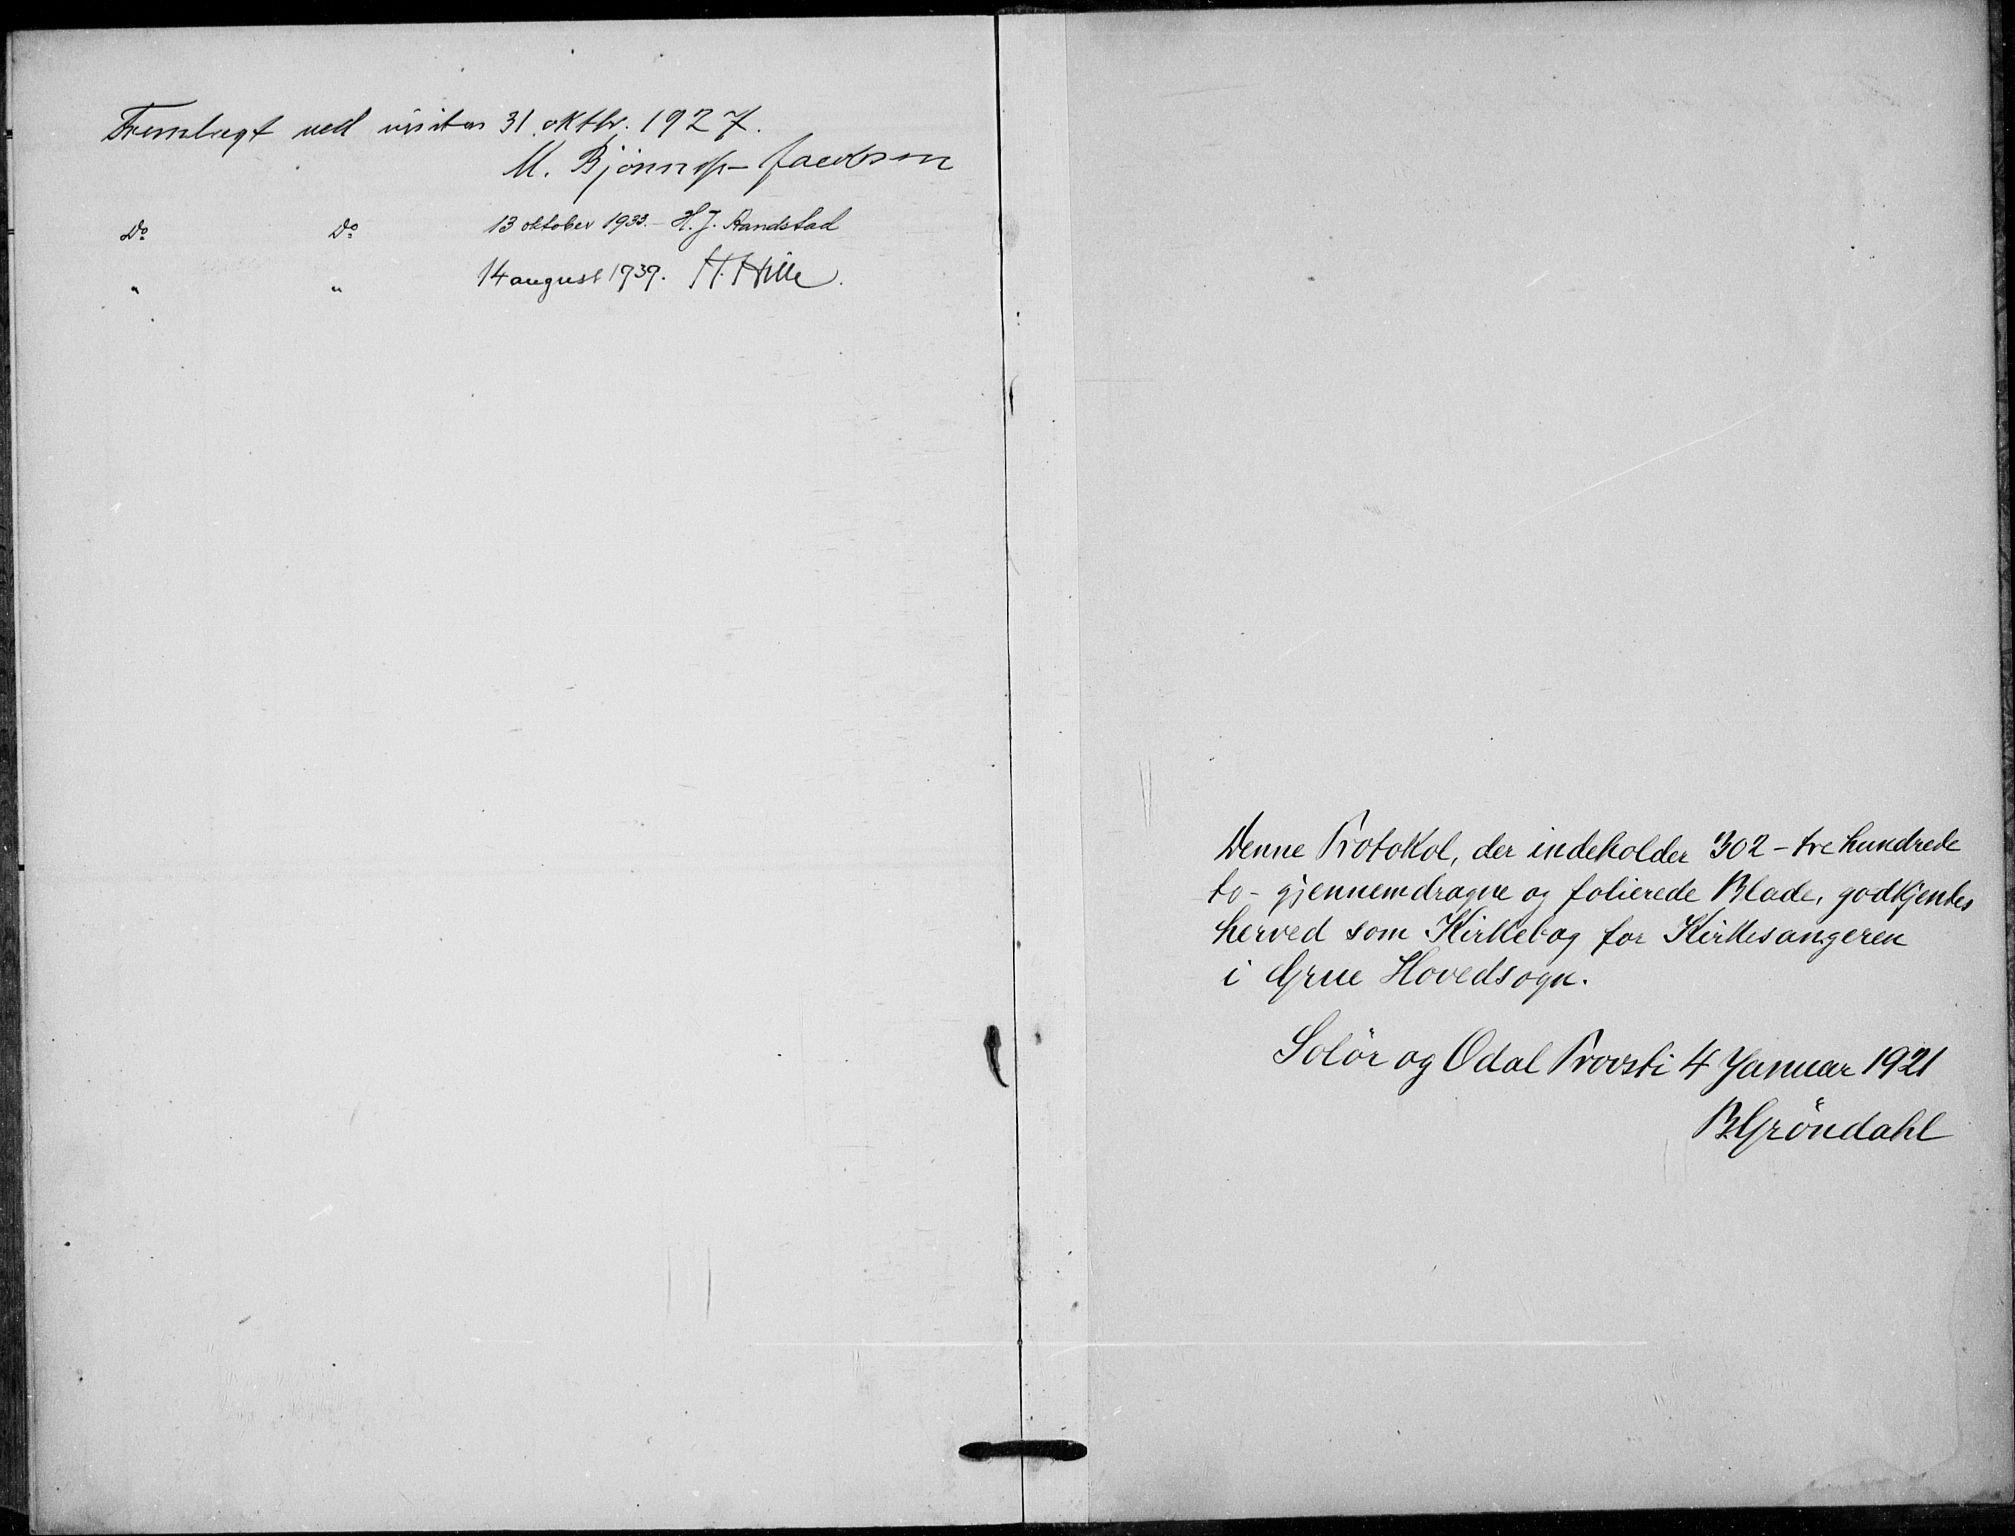 Fremlagt ved visitas 31. oktbr. 1927.
M. Bjønness-Jacobsen
Do Do 13 oktober 1933. - H. J. Sandstad
" " 14 august 1939. H. Hille.
Denne Protokol, der indeholder 302 - tre hundrede
to - gjennemdragne og folierede Blade, godkjentes
herved som Kirkebog for Kirkesangeren
i Grue Hovedsogn.
Solör og Odal Provsti 4 Januar 1921
B. Gröndahl